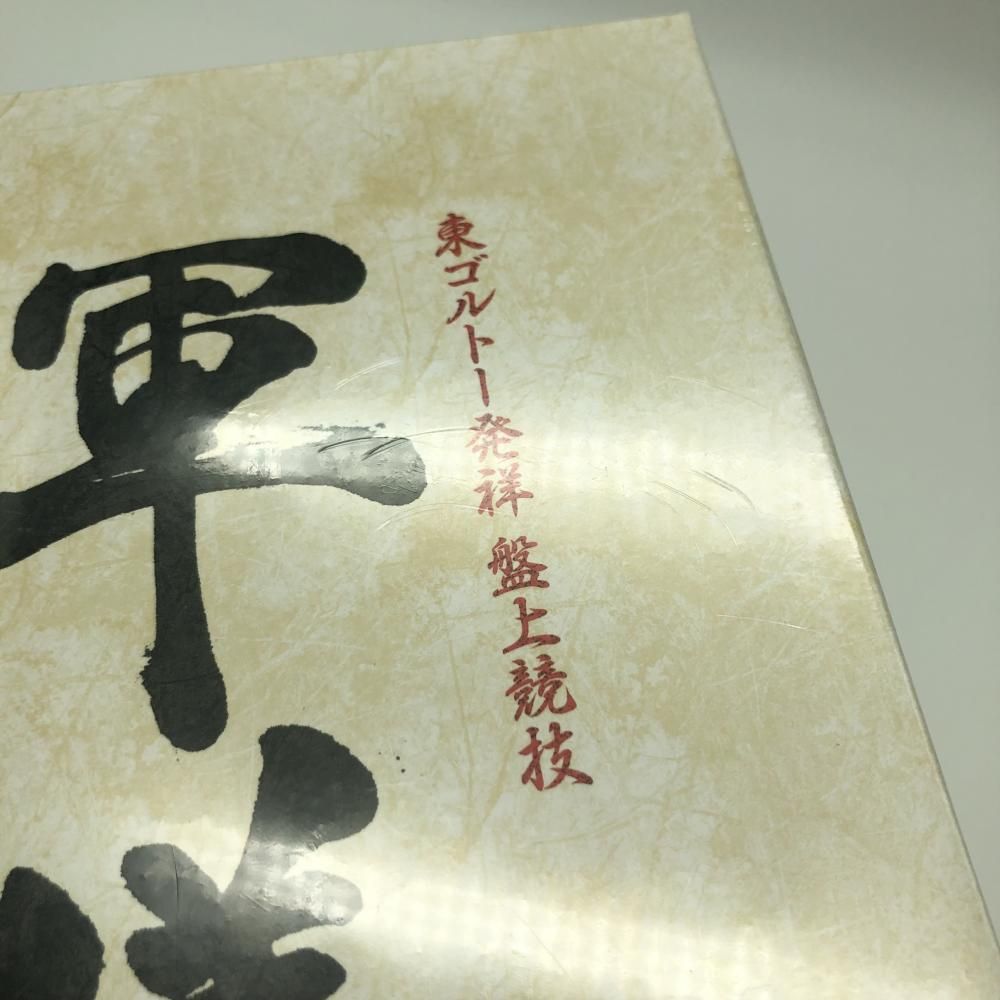 東ゴルトー発祥 盤上競技
軍